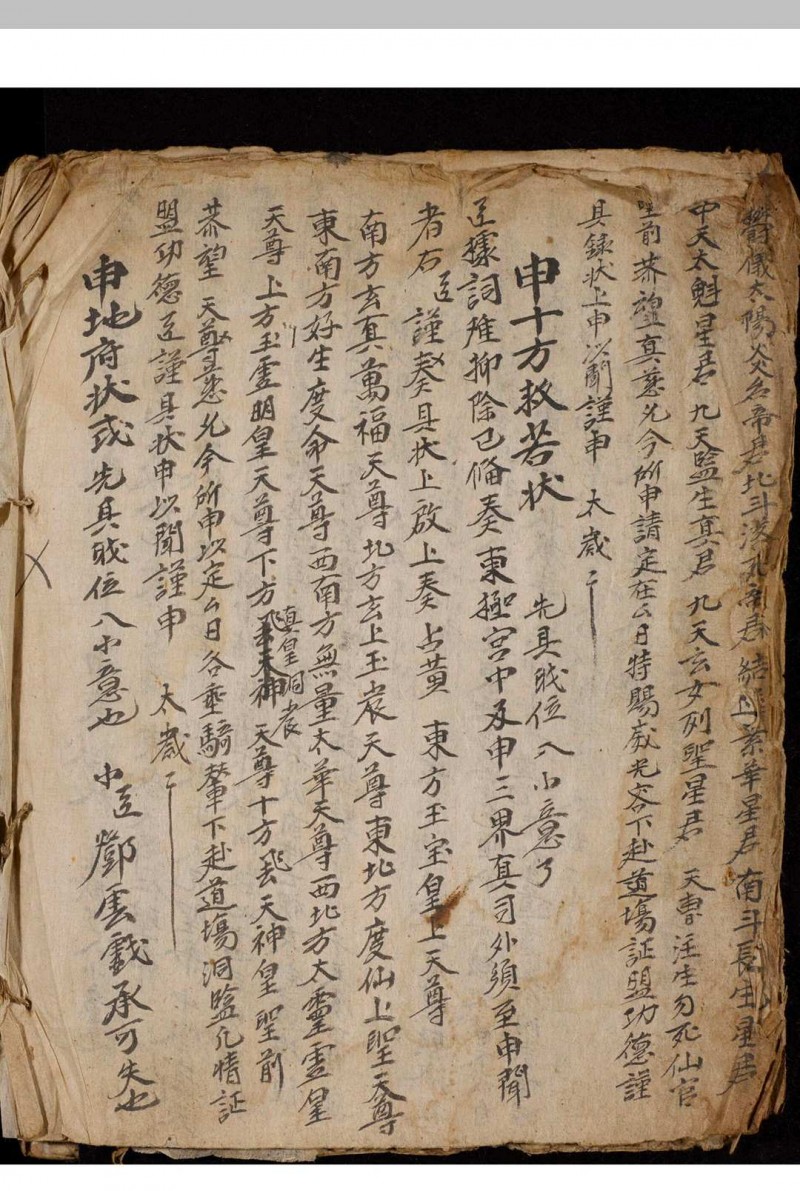 欎儀太陽炎名帝君北斗洪元帝君結璘素華星君南斗長生星君
中天太魁星君九天監生真君九天玄女列聖星君天曹注生勾死仙官
聖前恭望真慈允今所申請定在厶日特賜威光容下赴道場証盟功德謹
具錄狀上申以聞謹申太歲〒
申十方救苦狀先具职位入小意了
臣據詞难抑除已俻奏東極宮中及申三界真司外須至申聞
者右臣謹奏具狀上啟上奏占黄東方玉宝皇上天尊
南方玄真萬福天尊北方玄上玉宸天尊東北方度仙上聖天尊
東南方好生度命天尊西南方無量太華天尊西北方太靈虛皇
天尊上方玉虛明皇天尊下方真皇洞宸天尊十方飛天神皇聖前
恭望天尊慈允今所申以定厶日各垂騎輦下赴道場洞監凡情証
盟功德臣謹具狀申以聞謹申太歲〒
申地府狀或先具职位入小意也小臣鄧雲戲承可失也